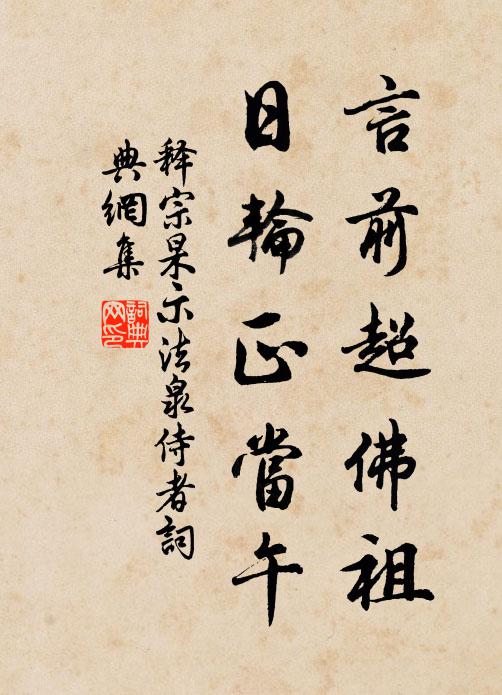 言前超佛祖
日輪正當午
釋宗杲示法泉侍者詞
典網集
詞典網印